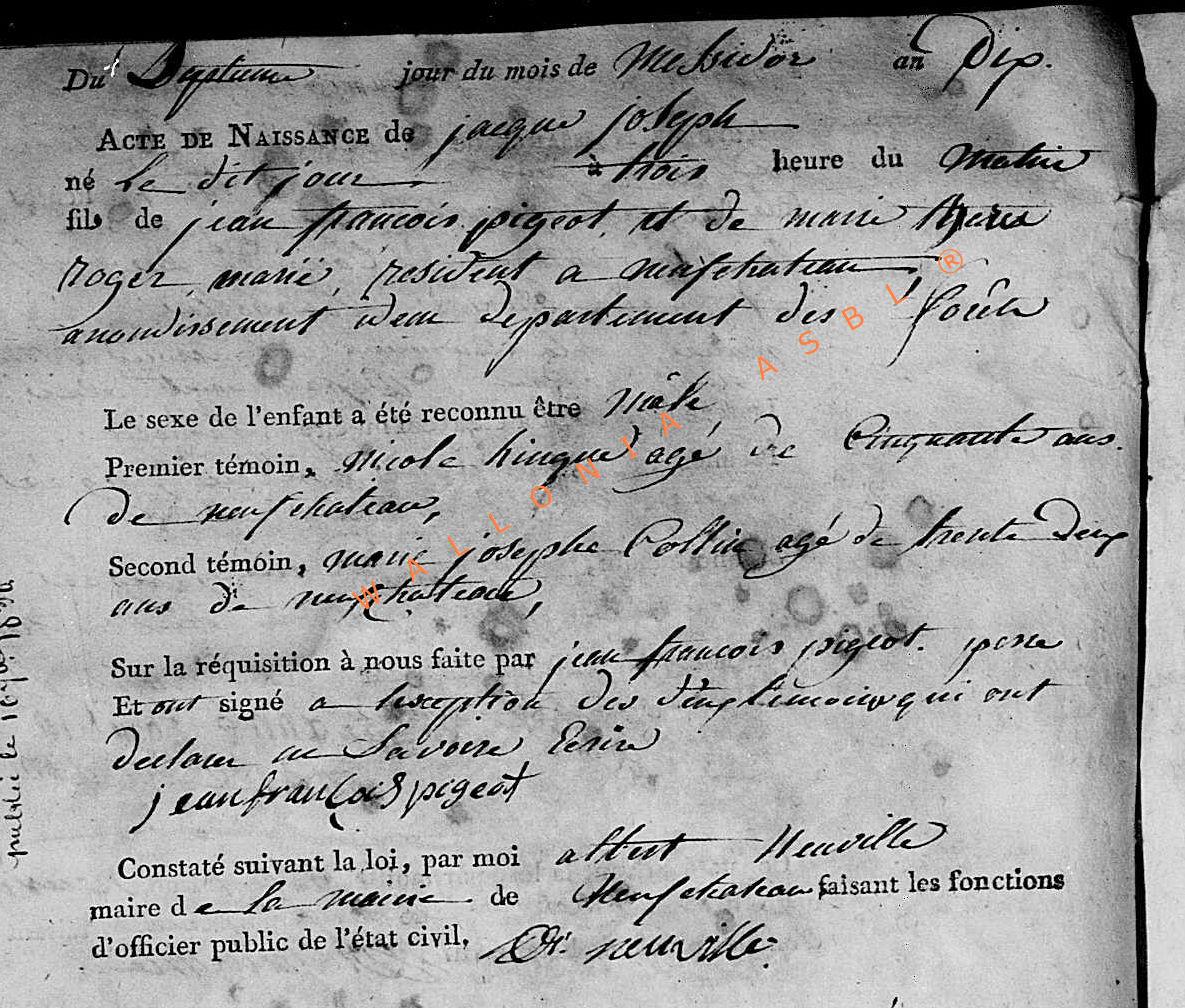 Du Septieme jour du mois de Messidor an Dix.
ACTE DE NAISSANCE de jacque joseph
né le dit jour à trois heure du matin
fils de jean françois pigeot, et de marie theres
roger, marié, resident a neufchateau
arrondissement idem departement des forêts
Le sexe de l'enfant a été reconnu être mâle
Premier témoin, nicola hinque agé de Cinquante ans.
de neufchateau,
Second témoin, marie josephe Collin agé de trente deux
ans de neufchateau,
Sur la réquisition à nous faite par jean françois pigeot. pere
Et ont signé a lexception des deux temoins qui ont
declarer ne Savoire Ecrire
jean françois pigeot
Constaté suivant la loi, par moi albert Neuville
maire de La mairie de Neufchateau faisant les fonctions
d'officier public de l'état civil, neuville
publié le
WALLONIA ASBL ®